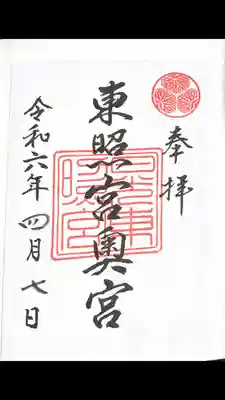 奉拝
東照宮奥宮
令和六年 四月 七日